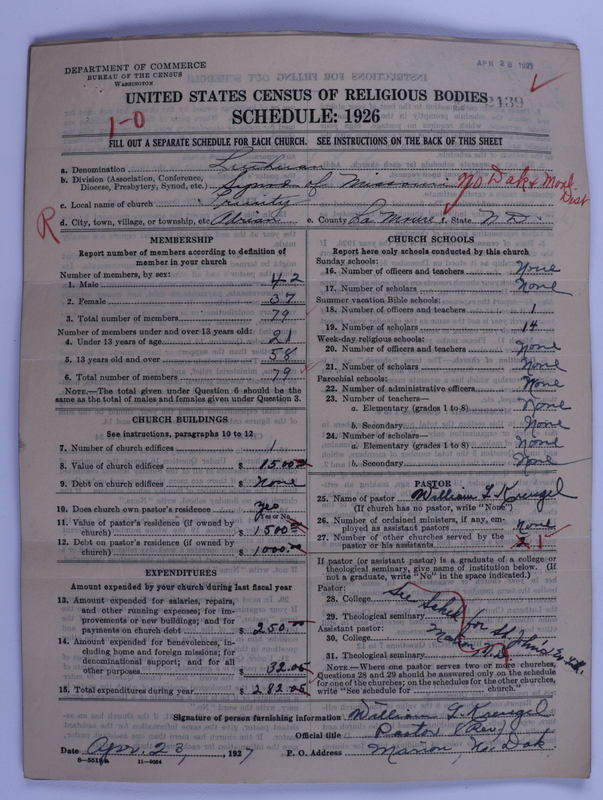 DEPARTMENT OF COMMERCE
BUREAU OF THE CENSUS
WASHINGTON
APR 26 1927
UNITED STATES CENSUS OF RELIGIOUS BODIES
2139
SCHEDULE: 1926
1-0
FILL OUT A SEPARATE SCHEDULE FOR EACH CHURCH. SEE INSTRUCTIONS ON THE BACK OF THIS SHEET
a. Denomination Lutheran
b. Division (Association, Conference, Diocese, Presbytery, Synod, etc.) Synod of Missouri No. Dak & Mont. Dist
c. Local name of church Trinity
R
d. City, town, village, or township, etc. Adrian e. County La Moure f. State N.D.
MEMBERSHIP
Report number of members according to definition of
member in your church
Number of members, by sex:
1. Male 42
2. Female 37
3. Total number of members 79
Number of members under and over 13 years old:
4. Under 13 years of age 21
5. 13 years old and over 58
6. Total number of members 79
NOTE.—The total given under Question 6 should be the
same as the total of males and females given under Question 3.
CHURCH BUILDINGS
See instructions, paragraphs 10 to 12
7. Number of church edifices 1
8. Value of church edifices $ 1500.00
9. Debt on church edifices $ None
10. Does church own pastor's residence yes
(Yes or No)
11. Value of pastor's residence (if owned by
church) $ 1500.00
12. Debt on pastor's residence (if owned by
church) $ 1000.00
EXPENDITURES
Amount expended by your church during last fiscal year
13. Amount expended for salaries, repairs,
and other running expenses; for im-
provements or new buildings; and for
payments on church debt $ 250.00
14. Amount expended for benevolences, in-
cluding home and foreign missions; for
denominational support; and for all
other purposes $ 32.05
15. Total expenditures during year $ 282.05
CHURCH SCHOOLS
Report here only schools conducted by this church
Sunday schools:
16. Number of officers and teachers None
17. Number of scholars None
Summer vacation Bible schools:
18. Number of officers and teachers 1
19. Number of scholars 14
Week-day religious schools:
20. Number of officers and teachers None
21. Number of scholars None
Parochial schools:
22. Number of administrative officers None
23. Number of teachers—
a. Elementary (grades 1 to 8) None
b. Secondary None
24. Number of scholars—
a. Elementary (grades 1 to 8) None
b. Secondary None
PASTOR
25. Name of pastor William L Kreugel
(If church has no pastor, write "None")
26. Number of ordained ministers, if any, em-
ployed as assistant pastors None
27. Number of other churches served by the
pastor or his assistants 1
If pastor (or assistant pastor) is a graduate of a college or
theological seminary, give name of institution below. (If
not a graduate, write "No" in the space indicated.)
Pastor:
28. College
See Sched. for St. John's Ev. Luth.
29. Theological seminary
Marion N.D.
Assistant pastor:
30. College
31. Theological seminary
NOTE.—Where one pastor serves two or more churches,
Questions 28 and 29 should be answered only on the schedule
for one of the churches; on the schedules for the other churches,
write "See schedule for church."
Signature of person furnishing information William L Kreugel
Official title Pastor (Rev)
Date Apr. 23, 1927 P. O. Address Marion, No. Dak